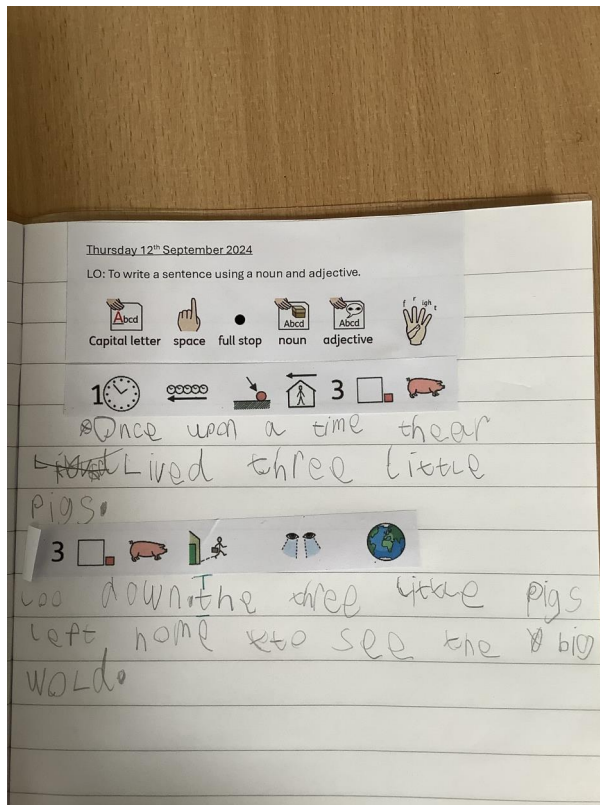 Thursday 12th September 2024
LO: To write a sentence using a noun and adjective.
f r igh t
Abcd Abcd Abcd
Capital letter space full stop noun adjective
1 3
Once upon a time thear
Lived three little
pigs.
3
down. The three little pigs
left home to see the big
world.